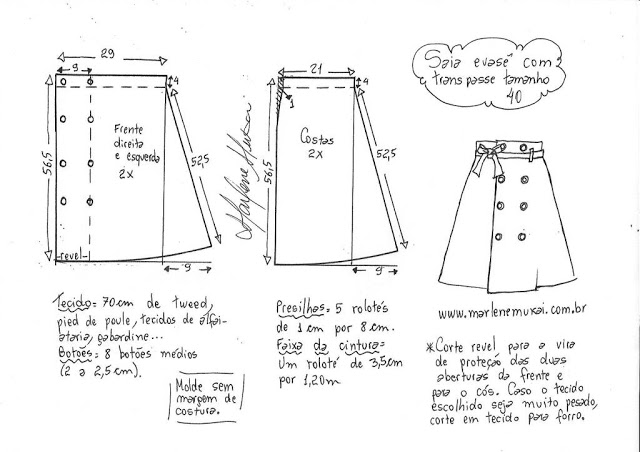 29
9
4
Frente
direita
e esquerda
2x
56,5
52,5
revel
9
21
4
1
Costas
2x
56,5
52,5
9
Marlene Mukai
Saia evasê com
transpasse tamanho
40
www.marlenemukai.com.br
Tecido= 70cm de tweed,
pied de poule, tecidos de alfai-
ataria, gabardine...
Botões= 8 botões médios
(2 a 2,5cm).
Molde sem
margem de
costura.
Presilhas= 5 rolotés
de 1cm por 8cm.
Faixa da cintura=
Um roloté de 3,5cm
por 1,20m
*Corte revel para a vira
de proteção das duas
aberturas da frente e
para o cós. Caso o tecido
escolhido seja muito pesado,
corte em tecido para forro.